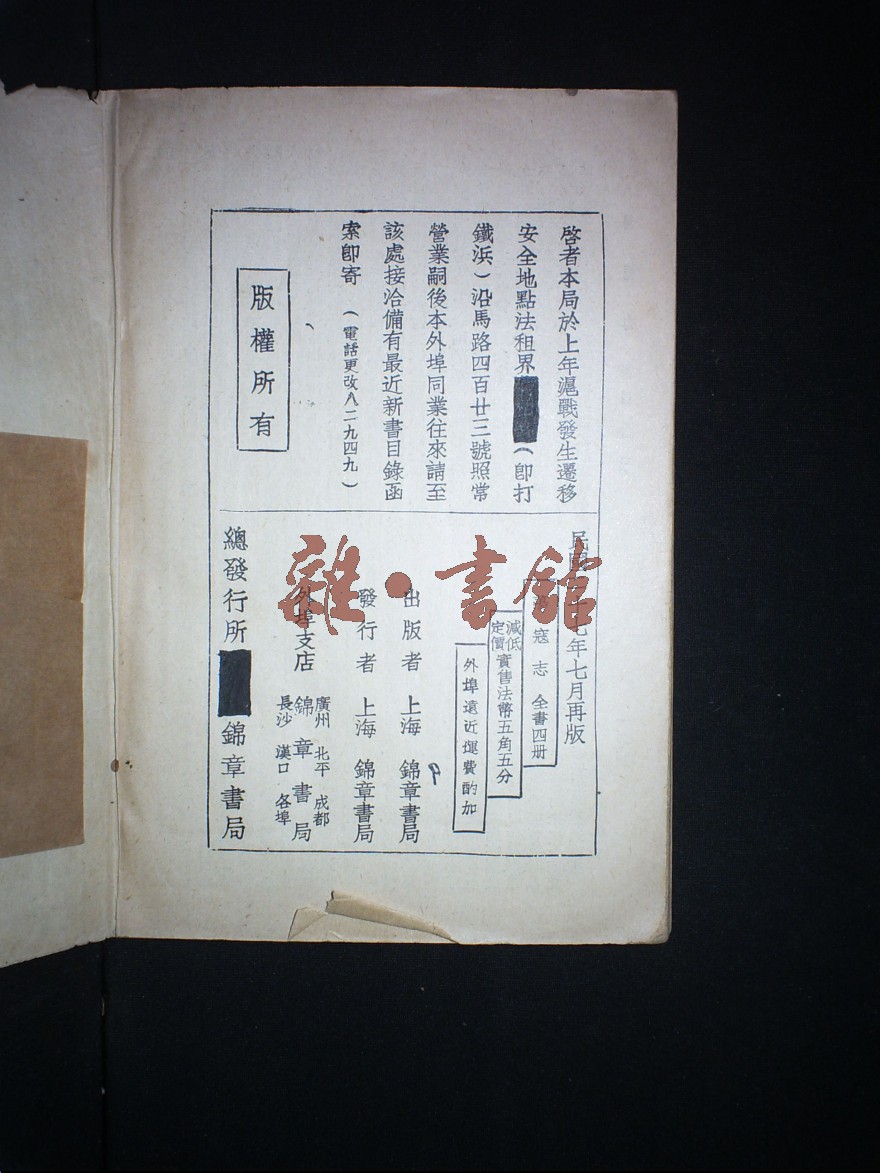 啓者本局於上年滬戰發生遷移
安全地點法租界（卽打
鐵浜）沿馬路四百廿三號照常
營業嗣後本外埠同業往來請至
該處接洽備有最近新書目錄函
索卽寄（電話更改八二九四九）
版權所有
民國年七月再版
寇志 全書四册
減低定價實售法幣五角五分
外埠遠近運費酌加
出版者 上海 錦章書局
發行者 上海 錦章書局
外埠支店 廣州 北平 成都 錦章書局 長沙 漢口 各埠
總發行所 錦章書局
雜·書館